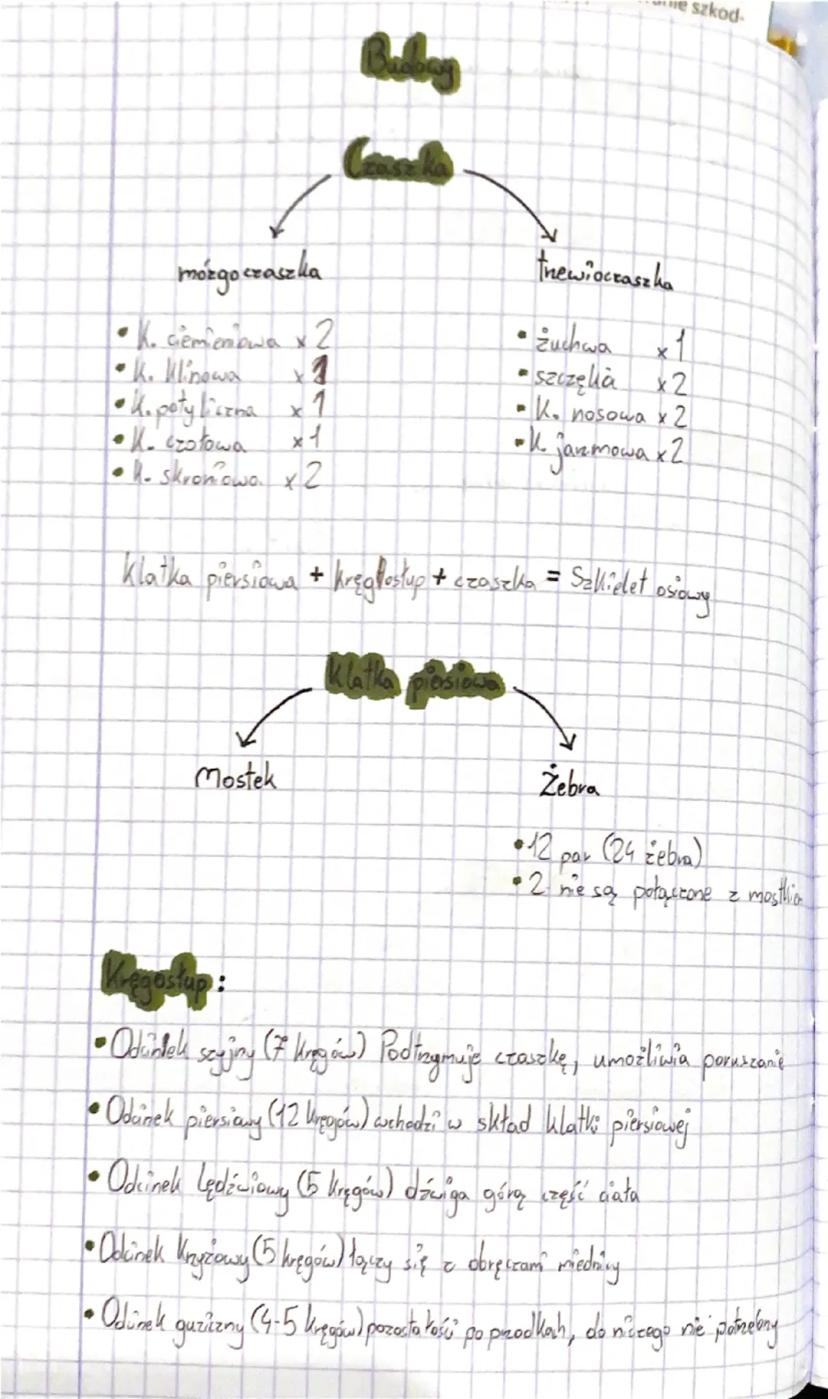 nie szkod-
Budowy
Czaszka
mózgoczaszka
trzewioczaszka
• K. ciemieniowa x 2
• K. klinowa x 1
• K. potyliczna x 1
• K. czołowa x 1
• K. skroniowa x 2
• żuchwa x 1
• szczęka x 2
• K. nosowa x 2
• K jarzmowa x 2
Klatka piersiowa + kręgosłup + czaszka = Szkielet osiowy
Klatka piersiowa
Mostek
Żebra
• 12 par (24 żebra)
• 2 nie są połączone z
Kręgosłup:
• Odcinek szyjny (7 kręgów) Podtrzymuje czaszkę, umożliwia poruszanie
• Odcinek piersiowy (12 kręgów) wchodzi w skład klatki piersiowej
• Odcinek lędźwiowy (5 kręgów) dźwiga górą część ciała
• Odcinek Krzyżowy (5 kręgów) łączy się z obręczami miednicy
• Odcinek guziczny (4-5 kręgów) pozostałość po przodkach, do niczego nie potrzebny